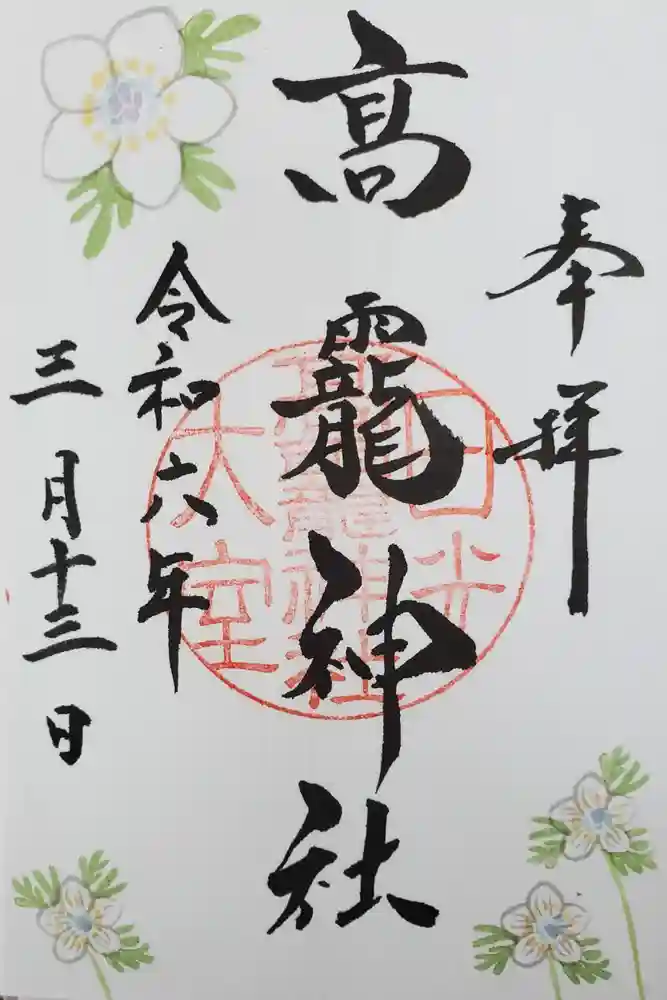 奉拝
高龗神社
令和六年
三月十三日
日光
高龗神社
大室